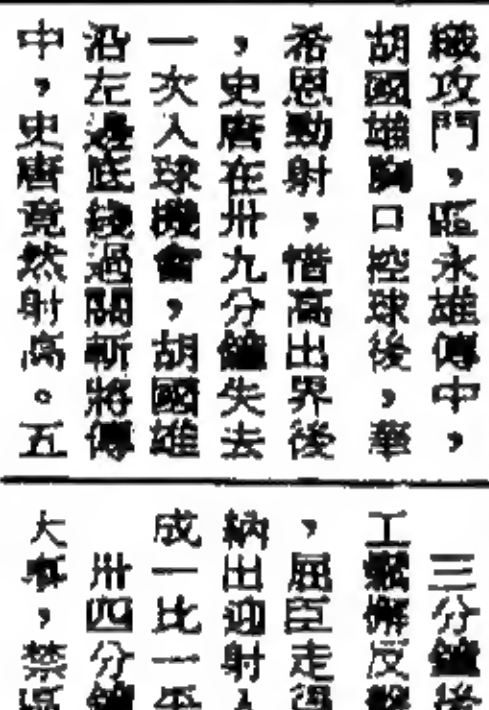 織攻門，區永雄傳中，
胡國雄胸口控球後，華
希恩勁射，惜高出界後
，史唐在卅九分鐘失去
一次入球機會，胡國雄
沿左邊底綫過關斬將傳
中，史唐竟然射高。五
三分鐘後
工懈反擊
，屈臣走
納出迎射入
成一比一平
卅四分鐘
大春，禁區